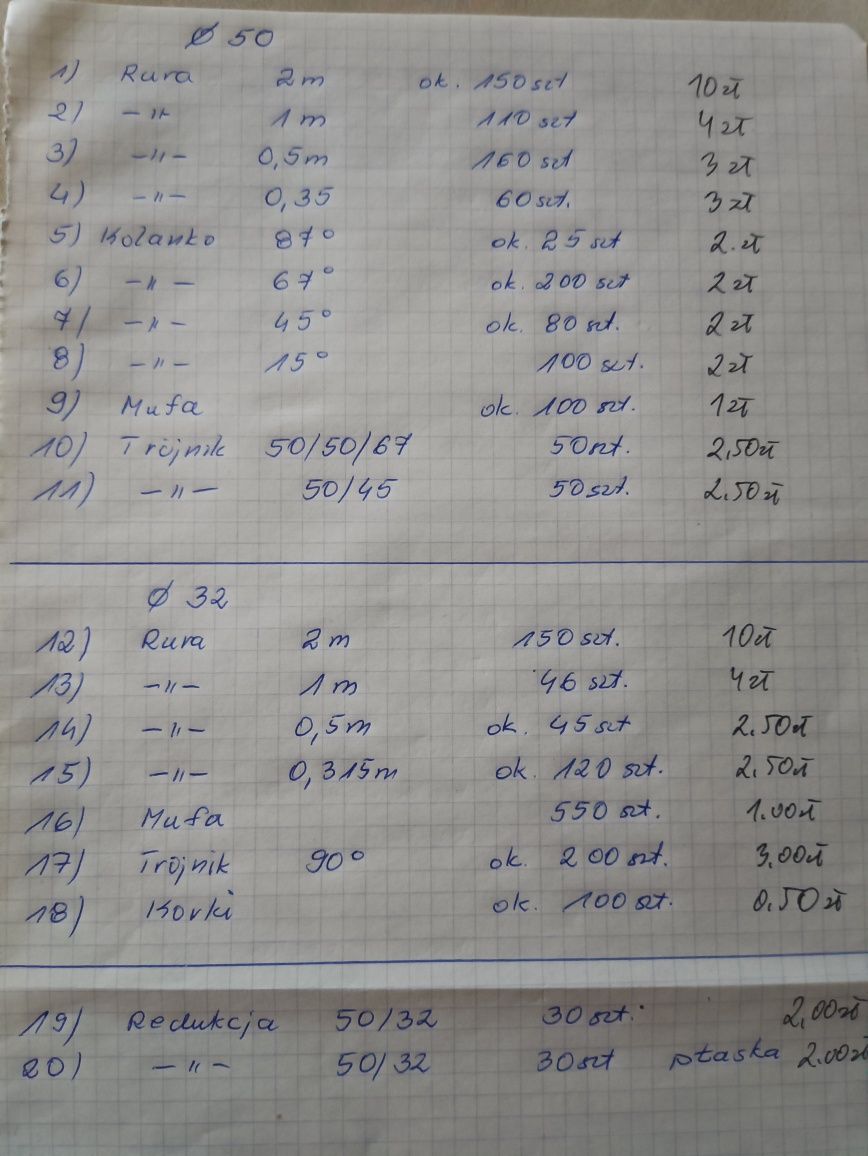 Ø 50
1) Rura 2m ok. 150 szt 10 zł
2) -"- 1m 110 szt 4 zł
3) -"- 0,5m 160 szt 3 zł
4) -"- 0,35 60 szt. 3 zł
5) Kolanko 87° ok. 25 szt 2. zł
6) -"- 67° ok. 200 szt 2 zł
7) -"- 45° ok. 80 szt. 2 zł
8) -"- 15° 100 szt. 2 zł
9) Mufa ok. 100 szt. 1 zł
10) Trójnik 50/50/67 50 szt. 2,50 zł
11) -"- 50/45 50 szt. 2.50 zł
Ø 32
12) Rura 2m 150 szt. 10 zł
13) -"- 1m 46 szt. 4 zł
14) -"- 0,5m ok. 45 szt 2.50 zł
15) -"- 0,315m ok. 120 szt. 2.50 zł
16) Mufa 550 szt. 1.00 zł
17) Trójnik 90° ok. 200 szt. 3,00 zł
18) Korki ok. 100 szt. 0,50 zł
19) Redukcja 50/32 30 szt. 2,00 zł
20) -"- 50/32 30 szt płaska 2.00 zł